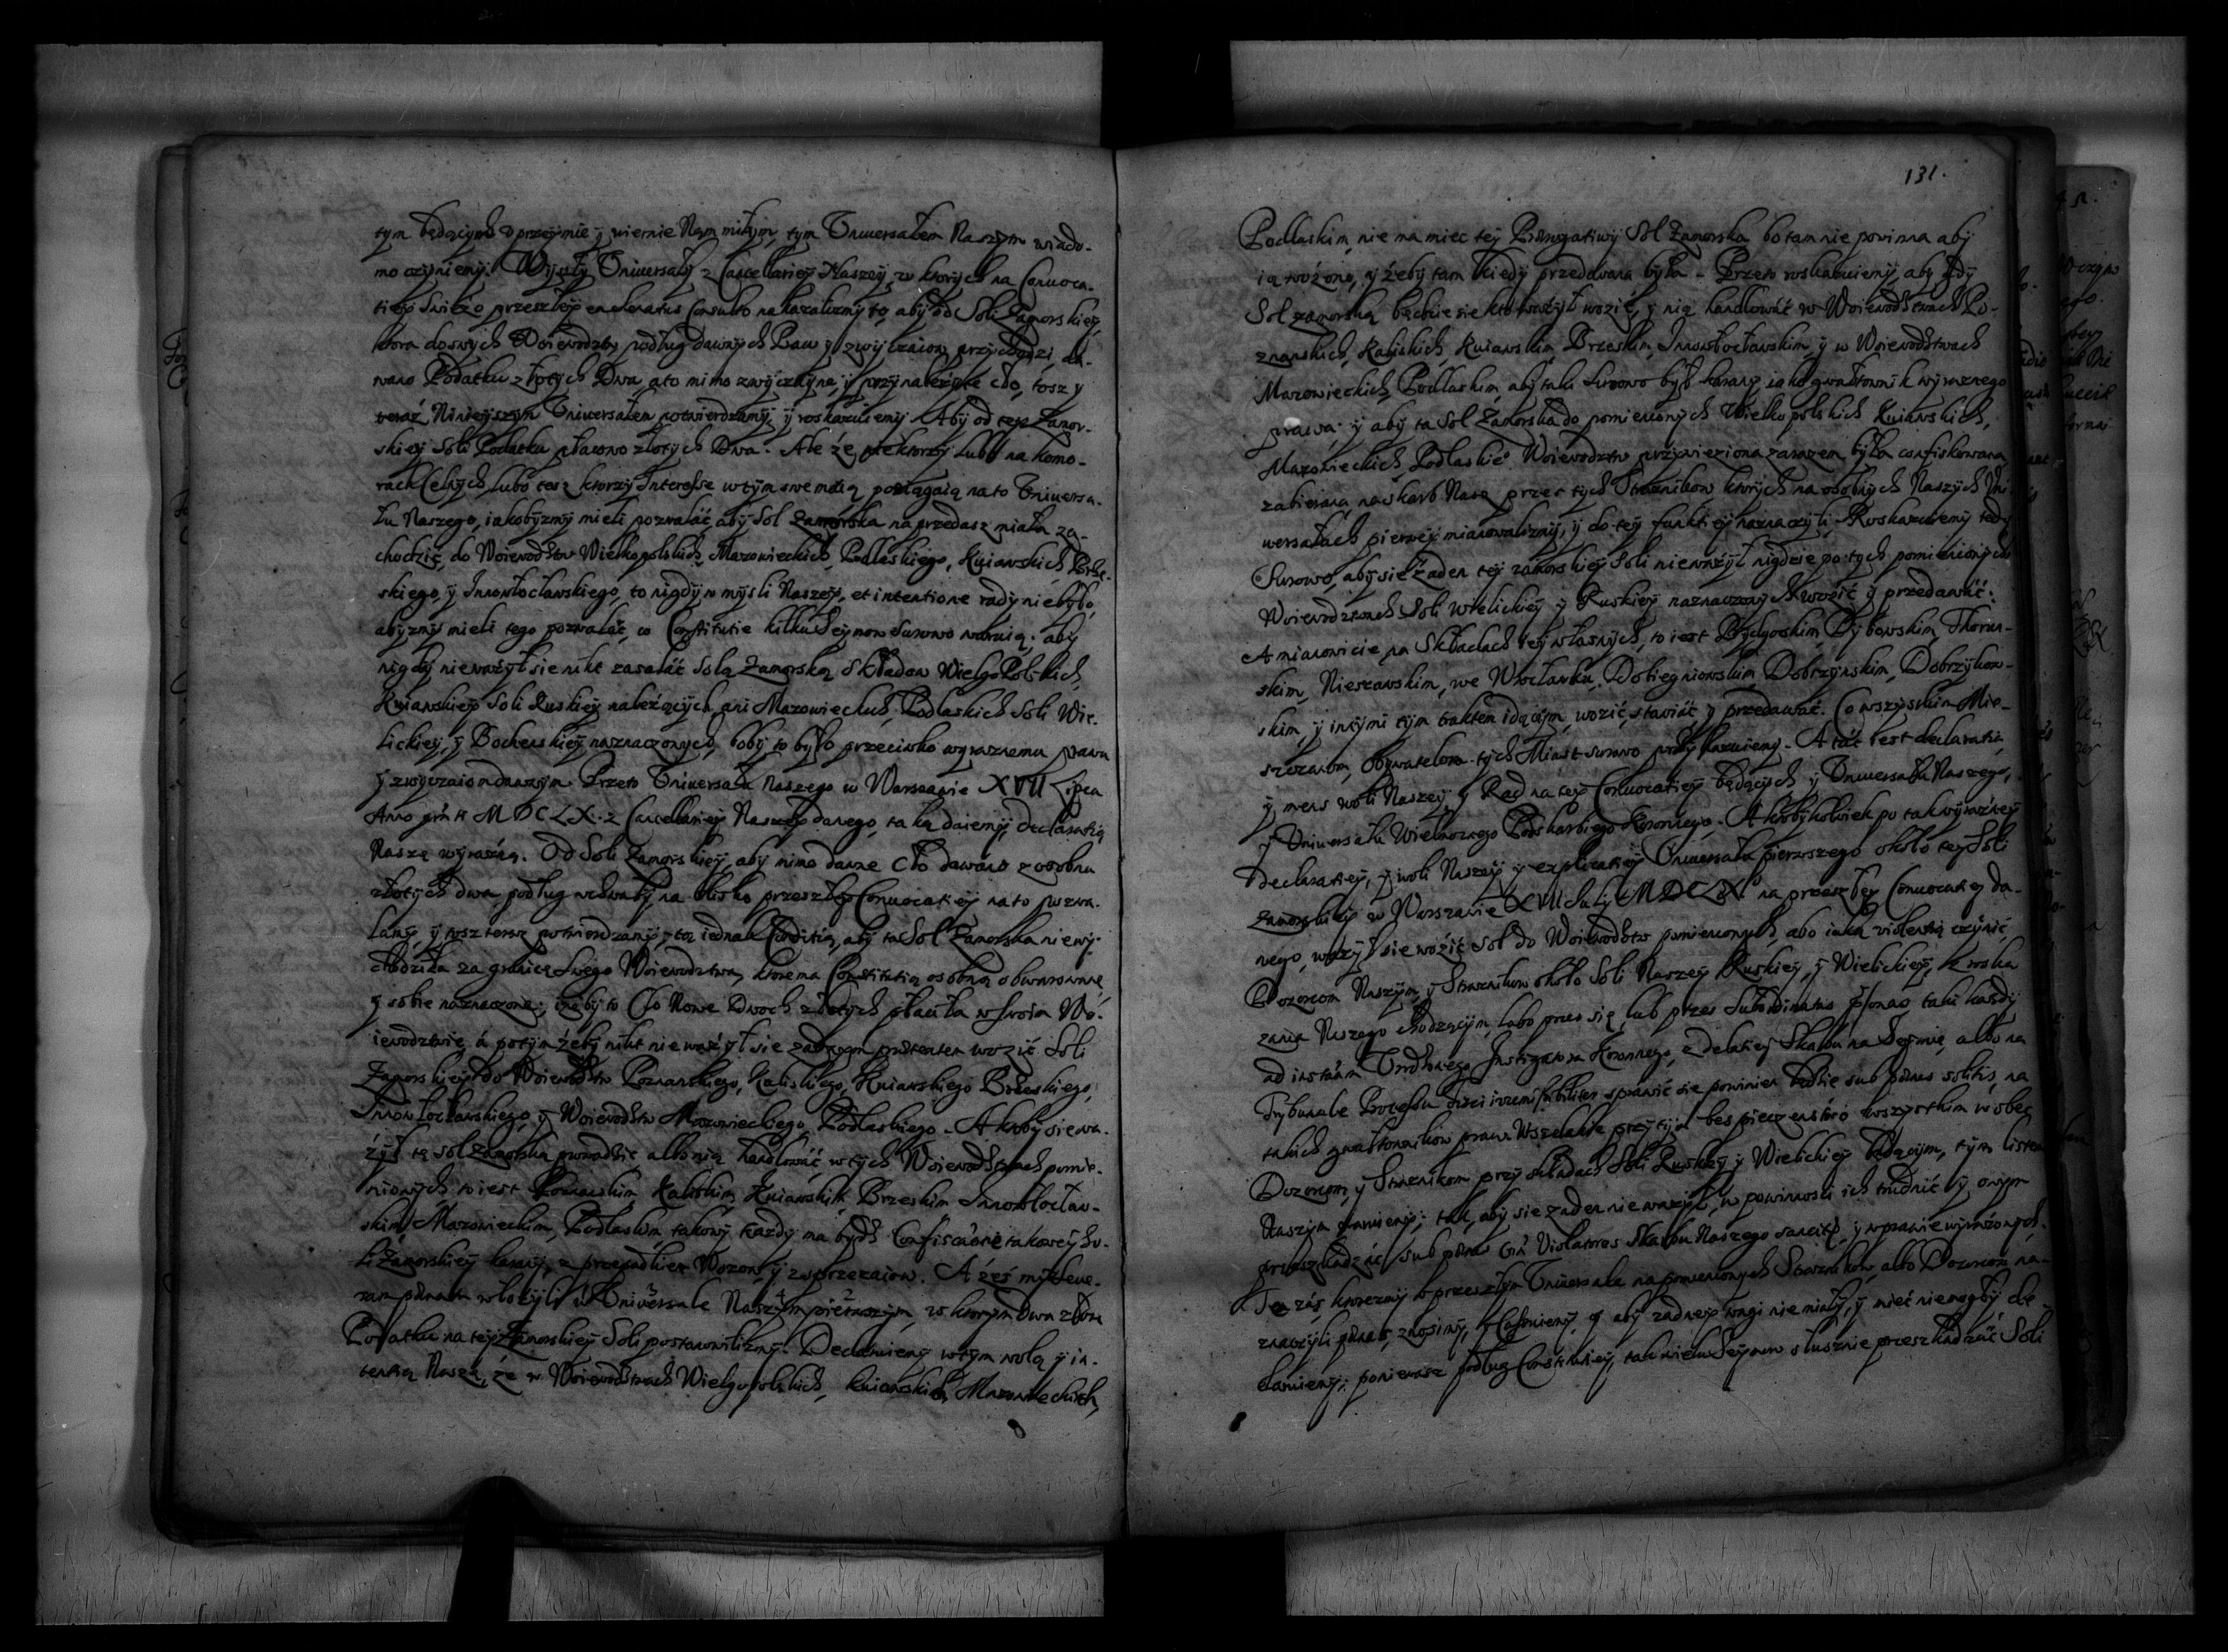 tym będącym uprzeymie y wiernie Nam miłym, tym Vniwersałem Naszym wiado-
mo czyniemy. Wyszły Vniwersały z Cancellariey Naszey, w ktorych na Convoca-
tiey świżo przeszłey en Senatus Consulto nakazalizmy to, aby od Soli Zamorskiey,
ktora do swych Woiewodztw podług dawnych Praw y zwyczaiow przychodzi, da-
wano Podatku złotych Dwa, a to mimo zwyczayne y przynależyte cło, tosz y
teraz Ninieyszym Vniwersałem potwierdzamy y roskazuiemy Aby od tey Zamor-
skiey Soli Podatku płacono złotych Dwa. Ale że niektorzy lubo na komo-
rach Celnych, lubo tesz ktorzy Interesse w tym swe maią posiągaią na to Vniwersa-
łu Naszego, iakobyzmy mieli pozwalać, aby Sol Zamorska na przedasz miała za-
chodzić, do Woiewodztw Wielkopolskich, Mazowieckich, Podlaskiego, Kuiawskich, Brze-
skiego, y Inowłocławskiego, to nigdy w mysli Naszey, et intentione rady nie było,
abyzmy mieli tego pozwalać, co Constitucie kilku Seymow surowo waruią: aby
nigdy nieważył sie nikt zasalać Solą Zamorską Składow Wielgo Polskich,
Kuiawskiey Soli Ruskiey należących, ani Mazowieckich, Podlaskich Soli Wie-
lickiey, y Bochenskiey naznaczonych, boby to było przeciwko wyraznemu prawu
y zwyczaiom dawnym. Przeto Vniwersału Naszego w Warszawie XVII Lipca
Anno MDCLX z Cancellariey Naszey danego, taką daiemy declaratią
Naszą wyrazną. Od Soli Zamorskiey, aby mimo dawne Cło dawano z osobna
złotych dwa, podług uchwały, na blisko przeszłey Convocatiey na to pozwa-
lamy, y tosz teraz potwierdzamy, z tą iednak Conditią, aby ta Sol Zamorska nie wy-
chodziła za granicę swego Woiewodztwa, ktore ma Constitutią osobną obwarowane
y sobie naznaczone; iżeby to Cło Nowe Dwoch złotych płaciła w swoim Wo-
iewodztwie, á potym żeby nikt nie ważył sie żadnym pretextem wozić Soli
Zamorskiey do Woiewodztw Poznanskiego, Kaliskiego, Kuiawskiego Brzeskiego,
Inowłocławskiego, y Woiewodztw Mazowieckiego, Podlaskiego. A ktoby sie wa-
żył tę Sol Zamorską prowadzić albo nią handlować, w tych Woiewodztwach pomie-
nionych to iest Poznanskim, Kaliskim, Kuiawskim, Brzeskim Inowłocław-
skim, Mazowieckim, Podlaskim, takowy każdy ma bydź Confiscatione takowey So-
li Zamorskiey karany, z przepadkiem Wozow, y zaprzezaiow. A żeś my
włożyli w Vniwersale Naszym pierwszym, w ktorym Dwa złote
Podatku na tey Zamorskiey Soli postanowilizmy. Declaruiemy w tym wolą y in-
tentią Naszą, że w Woiewodztwach Wielgopolskich, Kuiawskich, Mazowieckich,
131.
Podlaskim, nie ma miec tey Prerogatiwy Sol Zamorska, bo tam nie powinna aby
ią wożono, y żeby tam kiedy przedawana była. Przeto roskazuiemy, aby gdy
Sol zamorską będzie sie kto ważył wozić, y nią handlować w Woiewodztwach Po-
znanskich, Kaliskich, Kuiawskim, Brzeskim, Inowłocławskim, y w Woiewodztwach
Mazowieckich, Podlaskim, aby taki surowo był karany, iako gwałtownik wyraznego
prawa; y aby ta Sol Zamorska do pomienionych Wielkopolskich Kuiawskich,
Mazowieckich, Podlaskie Woiewodztw przywieziona zarazem była confiskowana,
zabierana na skarb Nasz przez tych Strasznikow, ktorych na osobnych Naszych Vni-
wersałach pierwey mianowalizmy, y do tey funktiey naznaczyli. Roskazuiemy tedy
Surowo, aby sie żaden tey zamorskiey Soli nieważył nigdzie po tych pomienionych
Woiewodztwach Soli Wielickiey y Ruskiey naznaczonych wozić y przedawać:
A mianowicie na Składach tey własnych, to iest Bydgoskim, Dybowskim, Thorun-
skim, Nieszawskim, we Włocławku, Dobiegniowskim Dobrzynskim, Dobrzykow-
skim, y inszymi tym traktem idącym, wozić, stawiać y przedawać. Co wszyskim Mie-
szczanom, Obywatelom tych Miast surowo przykazuiemy. A tać iest declaratia,
y mens woli Naszey, y Rad na tey Convocatiey będących y Vniwersału Naszego,
y Vniwersału Wielmoznego Podskarbiego Koronnego. A ktobykolwiek po tak wyrazney
Declaratiey, y woli Naszey y explicatiey Vniwersału pierwszego około tey Soli
Zamorskiey w Warszawie XVII July MDCLX na przeszłey Convocatiey da-
nego, ważył sie wozić Sol do Woiewodztw pomienionych, abo iaką violentią czynić
Dozorcom Naszym, y Strasznikom około Soli Naszey Ruskiey, y Wielickiey, z roska
zania Naszego chodzącym, labo przez się, lub przez subordinatas psonas, taki każdy
ad instantiam Vrodzonego Instigatora Koronnego, z delatiey Skarbu na Seymie, albo na
Trybunale Processu irremissibiliter sprawić sie powinien będzie sub panis solitis, na
takich gwałtownikow praw. Wszelakie przytym bespieczenstwo wszystkim w obec
Dozorcom, y Strasznikom przy składach Soli Ruskiey y Wielickiey będącym, tym listem
Naszym daiemy; tak, aby sie żaden nieważył, w powinnosci ich trudnić y onym
przeszkadzać sub panis Violatores Skarbu Naszego sancitis, y w prawie wyrażonych.
Te zaś, ktorezmy w przeszłym Vniwersale na pomienionych Strasznikow albo Dozorcow na-
znaczyli panas, znosimy, y Cassuiemy, y aby żadney wagi nie miały, y mieć niemogły, de-
claruiemy; poniewasz podług Constitutiey tak wielu Seymow słusznie przeszkadzać Soli